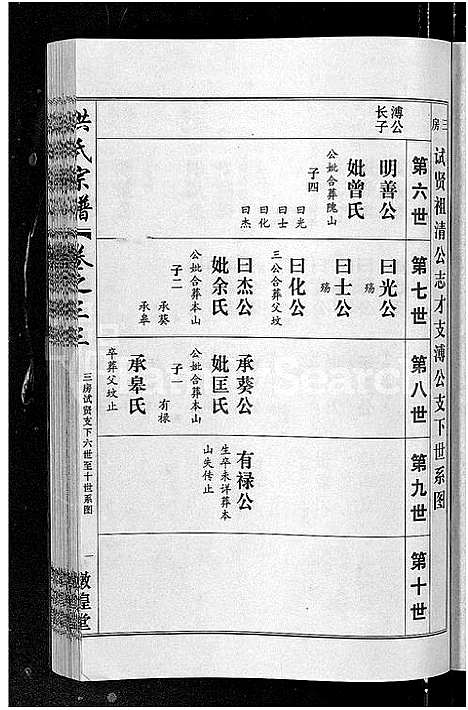 三房 试贤祖清公志才支溥公支下世系图
第六世
第七世
第八世
第九世
第十世
溥公
长子
明善公
妣曾氏
公妣合葬隗山
子四
曰光
曰士
曰化
曰杰
曰光公
殇
曰士公
殇
曰化公
三公合葬父坟
曰杰公
妣余氏
公妣合葬本山
子二
承葵
承皋
承葵公
妣匡氏
公妣合葬本山
子一
有禄
承皋氏
卒葬父坟止
有禄公
生卒未详葬本
山失传止
洪氏宗谱
卷之三三
三房试贤支下六世至十世系图
一
敦煌堂